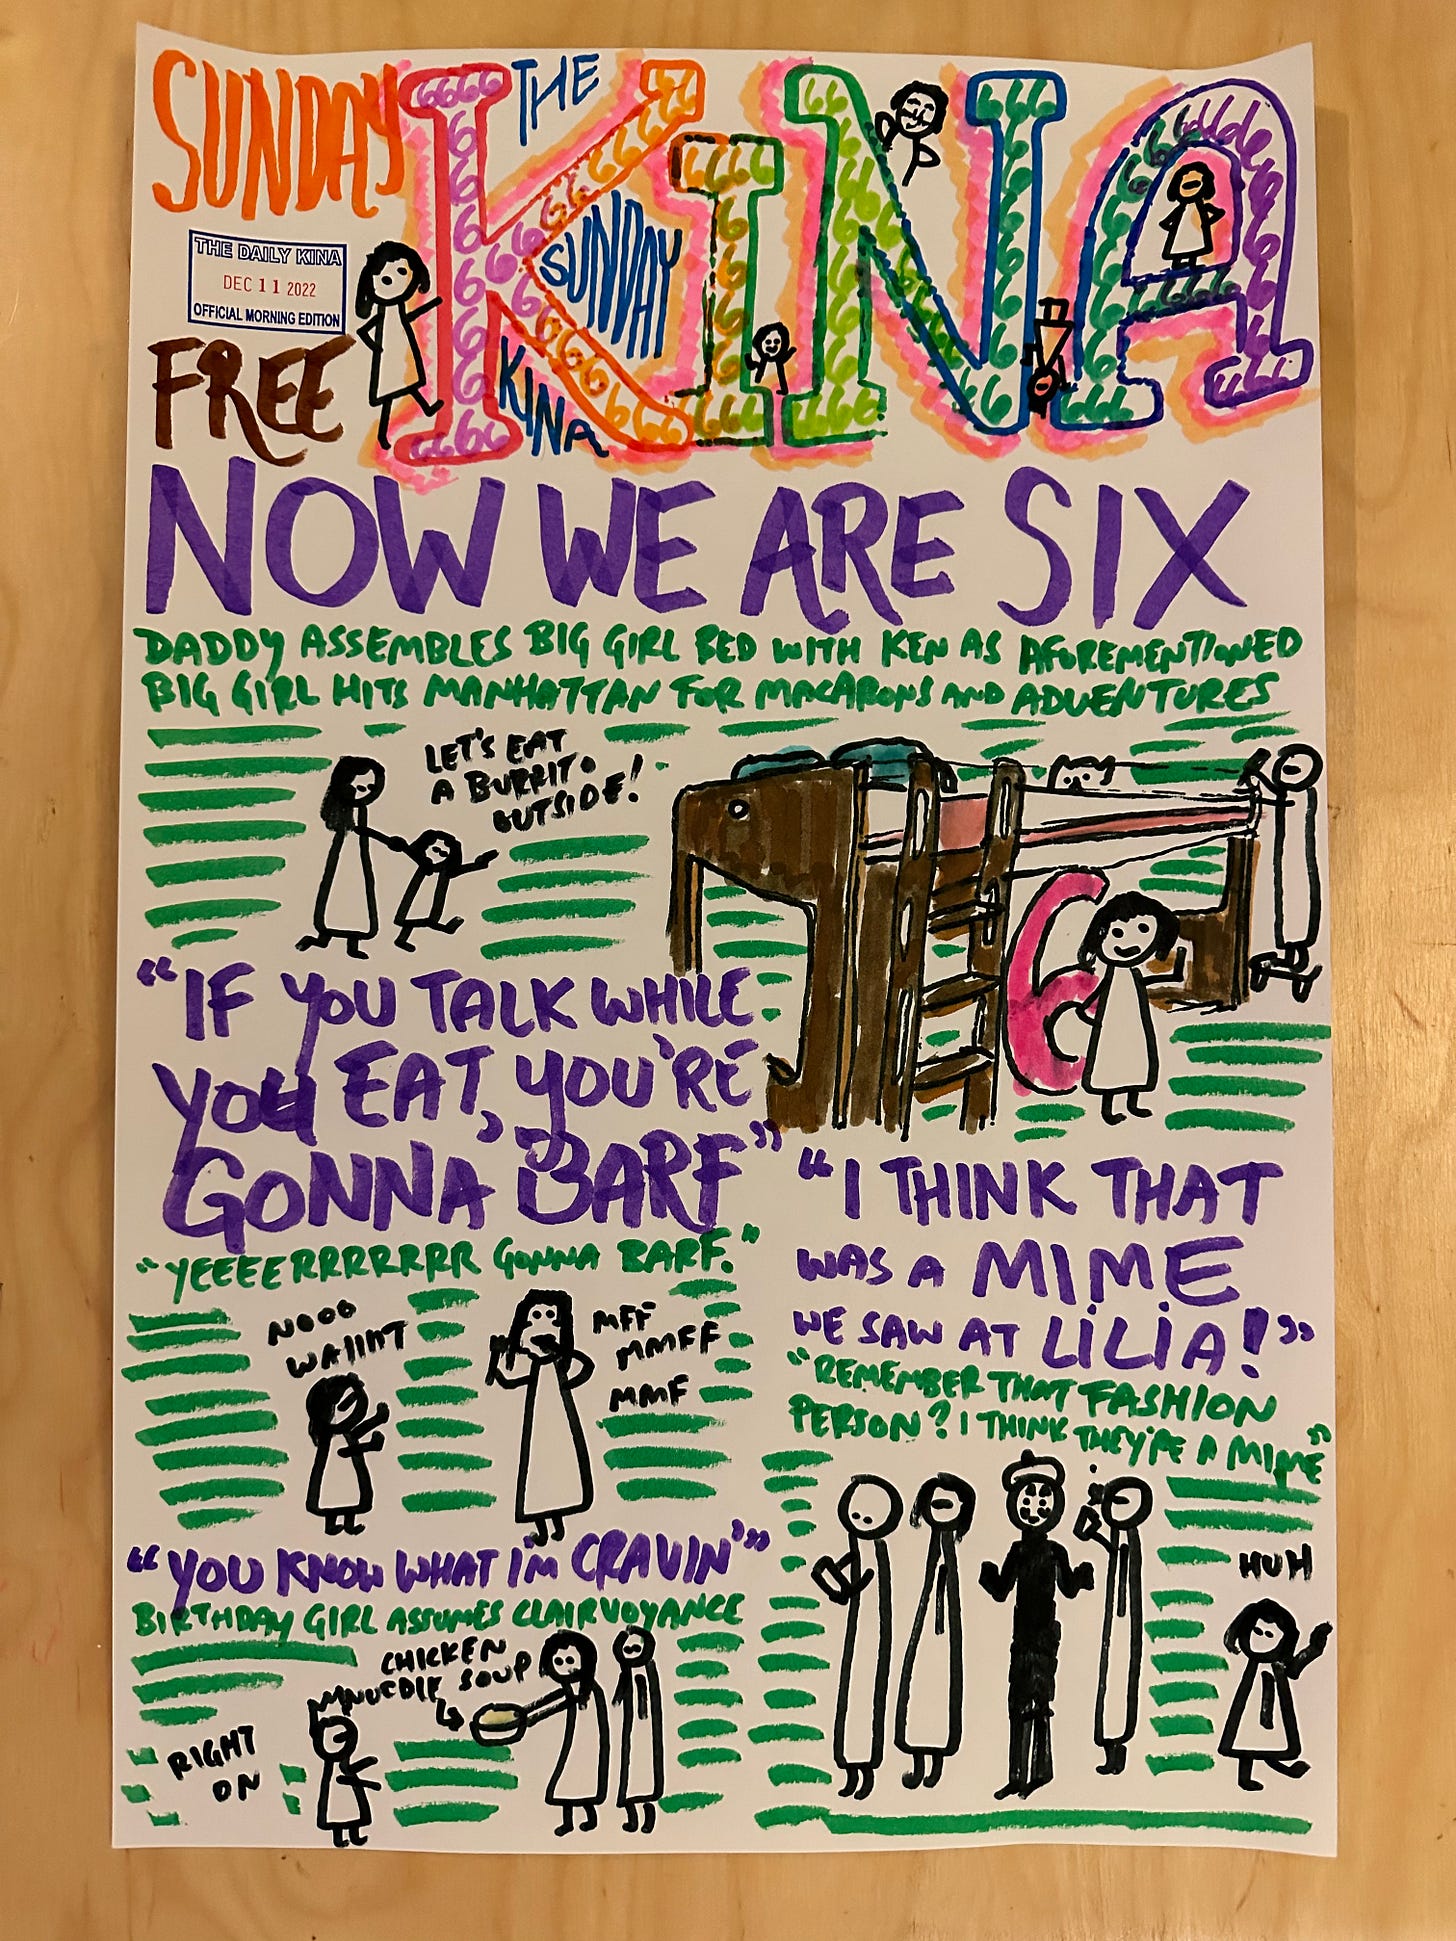 SUNDAY
THE
KINA
SUNDAY
KINA
THE DAILY KINA
DEC 11 2022
OFFICIAL MORNING EDITION
FREE
NOW WE ARE SIX
DADDY ASSEMBLES BIG GIRL BED WITH KEN AS AFOREMENTIONED
BIG GIRL HITS MANHATTAN FOR MACARONS AND ADVENTURES
LET'S EAT
A BURRITO
OUTSIDE!
6
"IF YOU TALK WHILE
YOU EAT, YOU'RE
GONNA BARF"
"YEEEERRRRRRR GONNA BARF."
NOOO
WAIIIT
MFF
MMFF
MMF
"YOU KNOW WHAT I'M CRAVIN'"
BIRTHDAY GIRL ASSUMES CLAIRVOYANCE
CHICKEN
NUCDLE SOUP
RIGHT
ON
"I THINK THAT
WAS A MIME
WE SAW AT LILIA!"
"REMEMBER THAT FASHION
PERSON? I THINK THEY'RE A MIME"
HUH